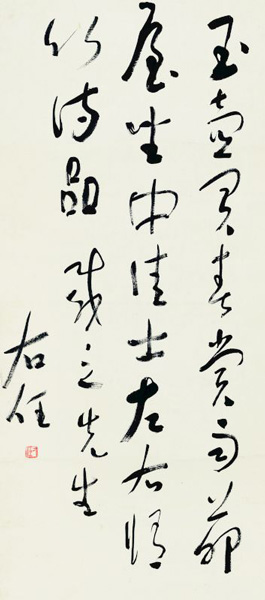 玉壺買春賞雨茆
屋坐中佳士左右脩
竹詩品 之先生
右任